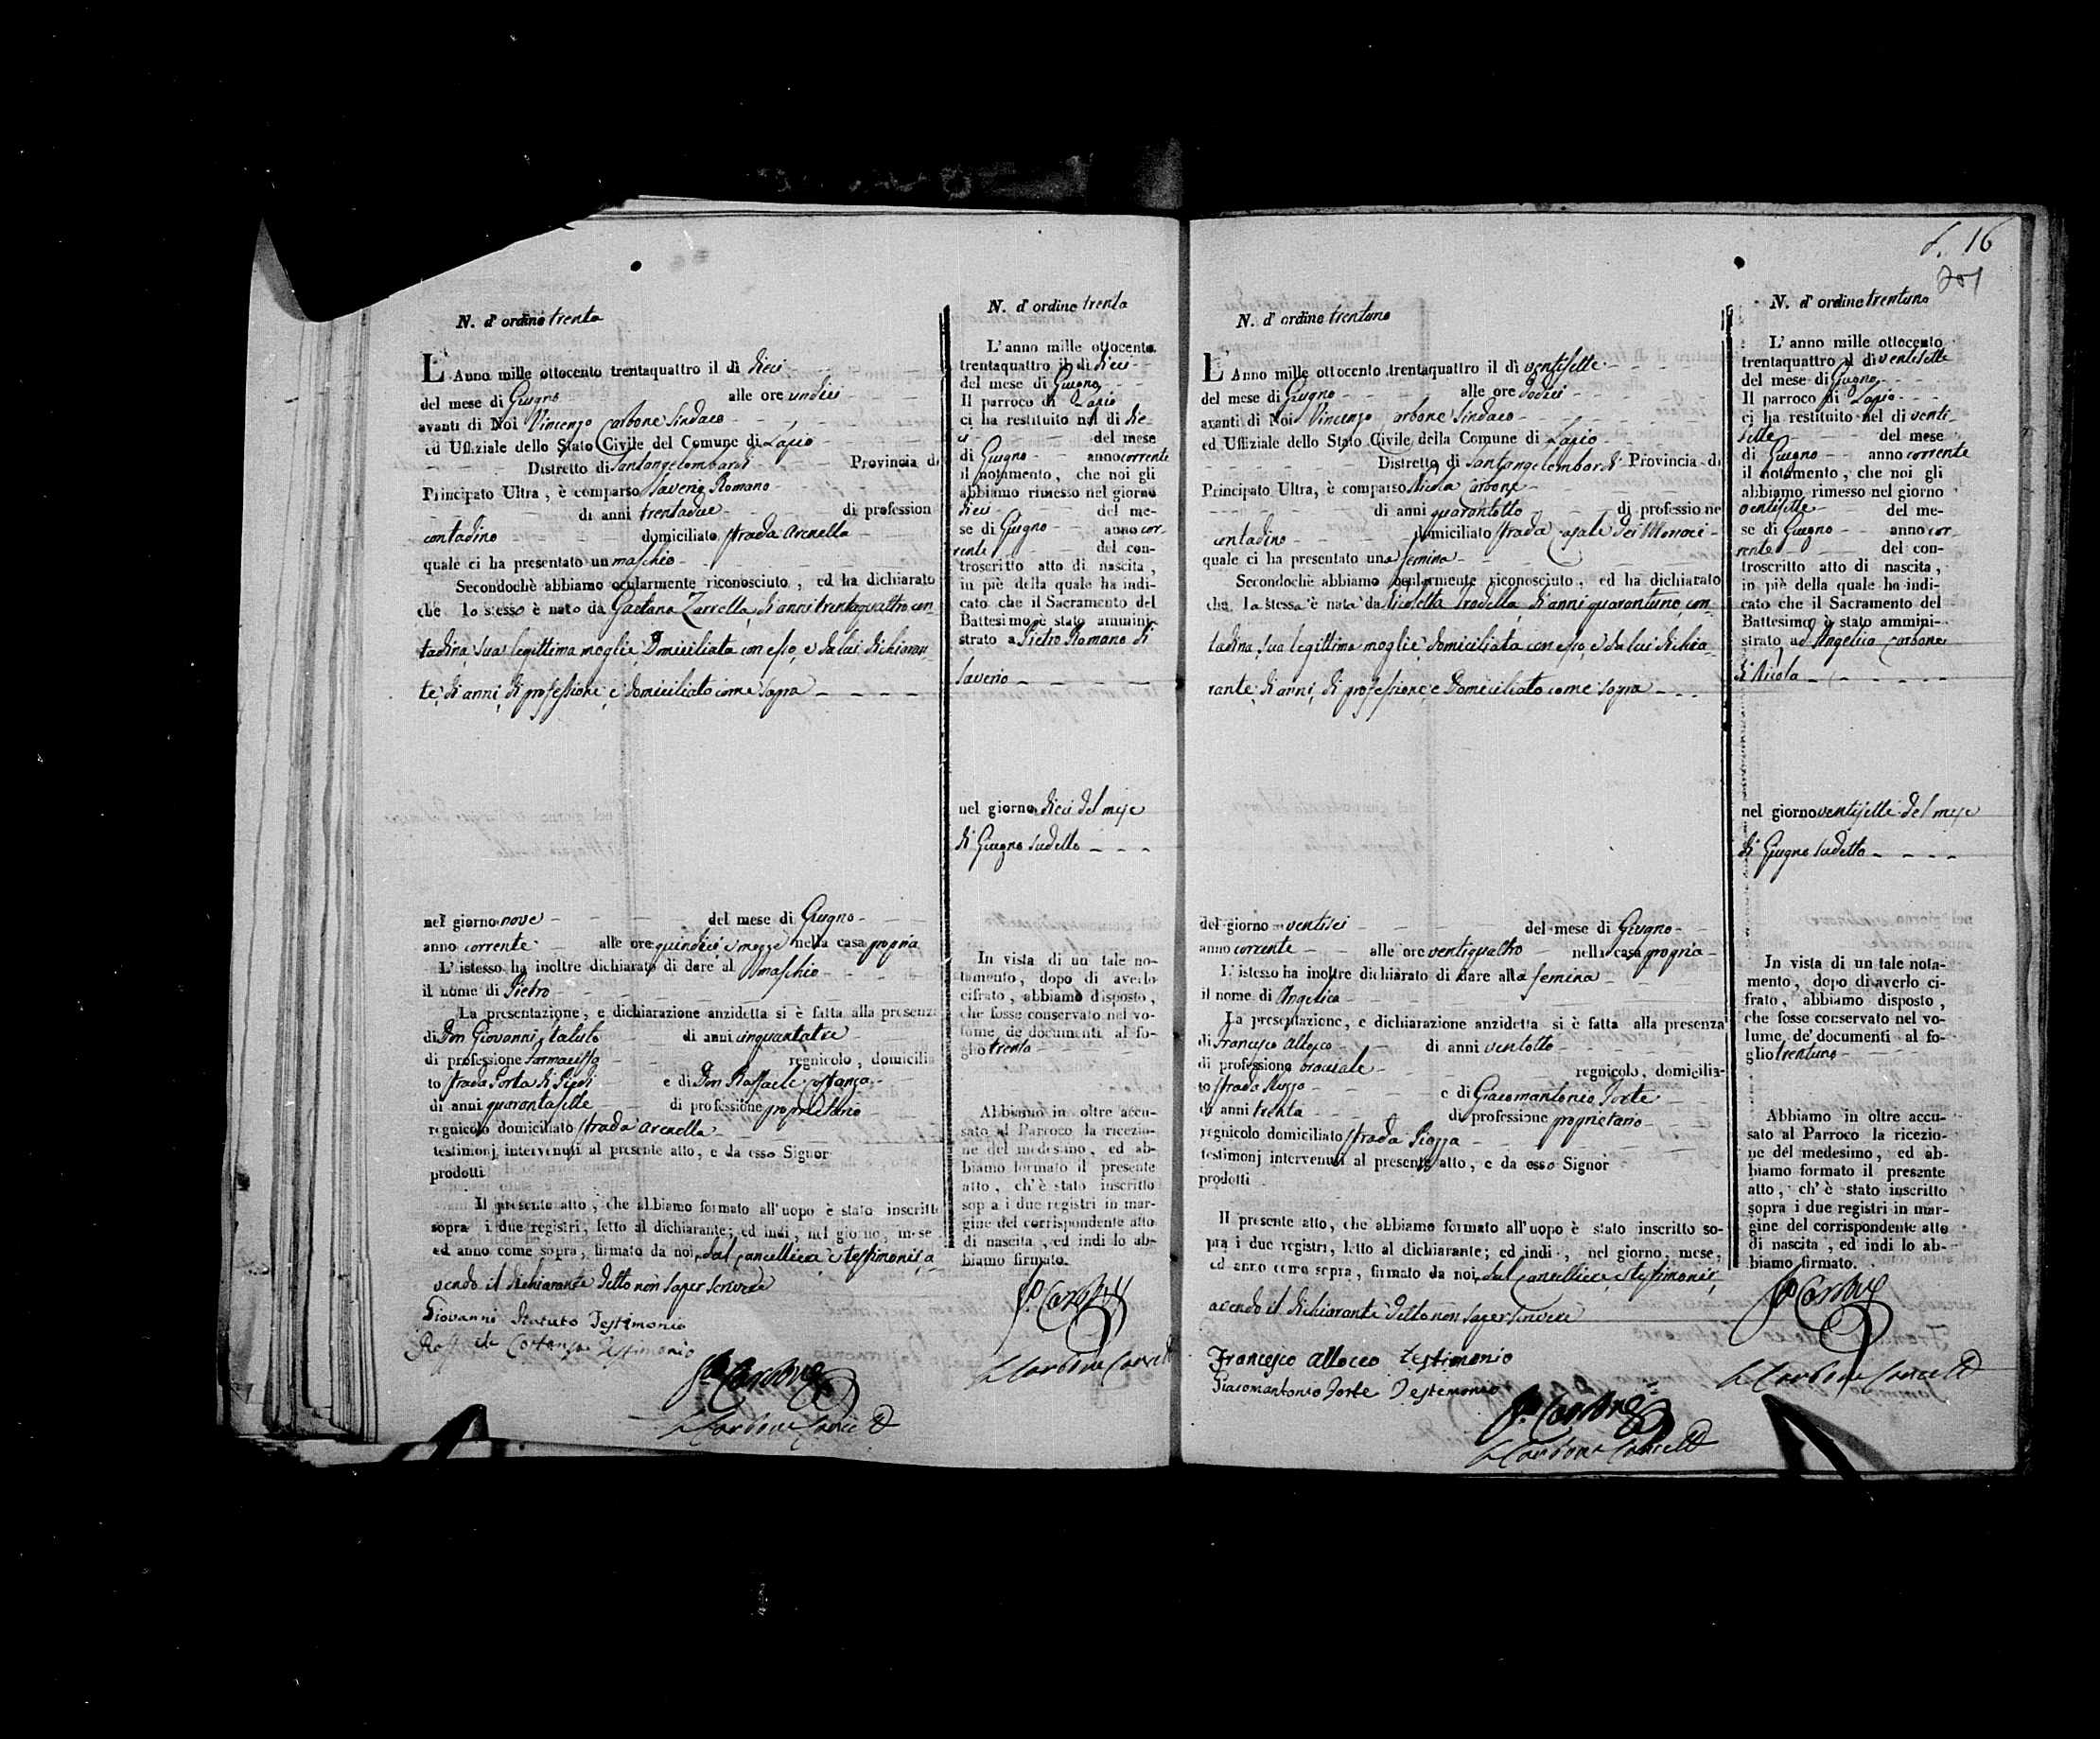 N. d'ordine trenta
L'Anno mille ottocento trentaquattro il dì dieci
del mese di Giugno alle ore undici
avanti di Noi Vincenzo Carbone Sindaco
ed Uffiziale dello Stato Civile del Comune di Lapio
Distretto di Santangelombardi Provincia di
Principato Ultra, è comparso Saverio Romano
di anni trentadue di profession
contadino domiciliato strada Arenella
quale ci ha presentato un maschio
Secondochè abbiamo ocularmente riconosciuto, ed ha dichiarato
che lo stesso è nato da Gaetana Zarrella, di anni trentaquattro con
tadina, sua legittima moglie, domiciliata con esso, e da lui dichiaran
te, di anni, di professione, e domiciliato come sopra
nel giorno nove del mese di Giugno
anno corrente alle ore quindici e mezze nella casa propria
L'istesso ha inoltre dichiarato di dare al maschio
il nome di Pietro
La presentazione, e dichiarazione anzidetta si è fatta alla presenza
di Don Giovanni Statuto di anni cinquantatre
di professione farmacista regnicolo, domicilia
to strada Porta di Piedi e di Don Raffaele Costanza
di anni quarantasette di professione proprietario
regnicolo domiciliato strada Arenella
testimonj intervenuti al presente atto, e da esso Signor
prodotti
Il presente atto, che abbiamo formato all'uopo è stato inscritto
sopra i due registri, letto al dichiarante; ed indi, nel giorno, mese
ed anno come sopra, firmato da noi, dal Cancelliere, e testimonj, a
vendo il dichiarante detto non saper scrivere
Giovanni Statuto Testimonio
Raffaele Costanza Testimonio
Carbone
Carbone Cancell
N. d'ordine trenta
L'anno mille ottocento
trentaquattro il dì dieci
del mese di Giugno
Il parroco di Lapio
ci ha restituito nel dì die-
ci del mese
di Giugno anno corrente
il notamento, che noi gli
abbiamo rimesso nel giorno
dieci del me-
se di Giugno anno cor-
rente del con-
troscritto atto di nascita,
in piè della quale ha indi-
cato che il Sacramento del
Battesimo è stato ammini-
strato a Pietro Romano di
Saverio
nel giorno dieci del mese
di Giugno sudetto
In vista di un tale no-
tamento, dopo di averlo
cifrato, abbiamo disposto,
che fosse conservato nel vo-
lume de' documenti al fo-
glio trenta
Abbiamo in oltre accu-
sato al Parroco la ricezio-
ne del medesimo, ed ab-
biamo formato il presente
atto, ch'è stato inscritto
sopra i due registri in mar-
gine del corrispondente atto
di nascita, ed indi lo ab-
biamo firmato.
Carbone
Carbone Cancell
f. 16
N. d'ordine trentuno
L'Anno mille ottocento trentaquattro il dì ventisette
del mese di Giugno alle ore dodici
avanti di Noi Vincenzo Carbone Sindaco
ed Uffiziale dello Stato Civile della Comune di Lapio
Distretto di Santangelombardi Provincia di
Principato Ultra, è comparso Nicola Carbone
di anni quarantotto di professione
contadino domiciliato strada Casale dei Monaci
quale ci ha presentato una femina
Secondochè abbiamo ocularmente riconosciuto, ed ha dichiarato
che la stessa è nata da Nicoletta Trodella, di anni quarantuno, con
tadina, sua legittima moglie, domiciliata con esso, e da lui dichia
rante, di anni, di professione, e domiciliato come sopra
del giorno ventisei del mese di Giugno
anno corrente alle ore ventiquattro nella casa propria
L'istesso ha inoltre dichiarato di dare alla femina
il nome di Angelica
La presentazione, e dichiarazione anzidetta si è fatta alla presenza
di Francesco Allocco di anni ventotto
di professione bracciale regnicolo, domicilia-
to strada
e di Giacomantonio Forte
di anni trenta di professione proprietario
regnicolo domiciliato strada Piazza
testimonj intervenuti al presente atto, e da esso Signor
prodotti
Il presente atto, che abbiamo formato all'uopo è stato inscritto so-
pra i due registri, letto al dichiarante; ed indi, nel giorno, mese,
ed anno come sopra, firmato da noi, dal Cancelliere, e testimonj,
avendo il dichiarante detto non saper scrivere
Francesco Allocco testimonio
Giacomantonio Forte Testemonio
Carbone
Carbone Cancell
N. d'ordine trentuno
L'anno mille ottocento
trentaquattro il dì ventisette
del mese di Giugno
Il parroco di Lapio
ci ha restituito nel dì venti-
sette del mese
di Giugno anno corrente
il notamento, che noi gli
abbiamo rimesso nel giorno
ventisette del me-
se di Giugno anno cor-
rente del con-
troscritto atto di nascita,
in piè della quale ha indi-
cato che il Sacramento del
Battesimo è stato ammini-
strato ad Angelica Carbone
di Nicola
nel giorno ventisette del mese
di Giugno sudetto
In vista di un tale nota-
mento, dopo di averlo ci-
frato, abbiamo disposto,
che fosse conservato nel vo-
lume de' documenti al fo-
glio trentuno
Abbiamo in oltre accu-
sato al Parroco la ricezio-
ne del medesimo, ed ab-
biamo formato il presente
atto, ch'è stato inscritto
sopra i due registri in mar-
gine del corrispondente atto
di nascita, ed indi lo ab-
biamo firmato.
Carbone
Carbone Cancell